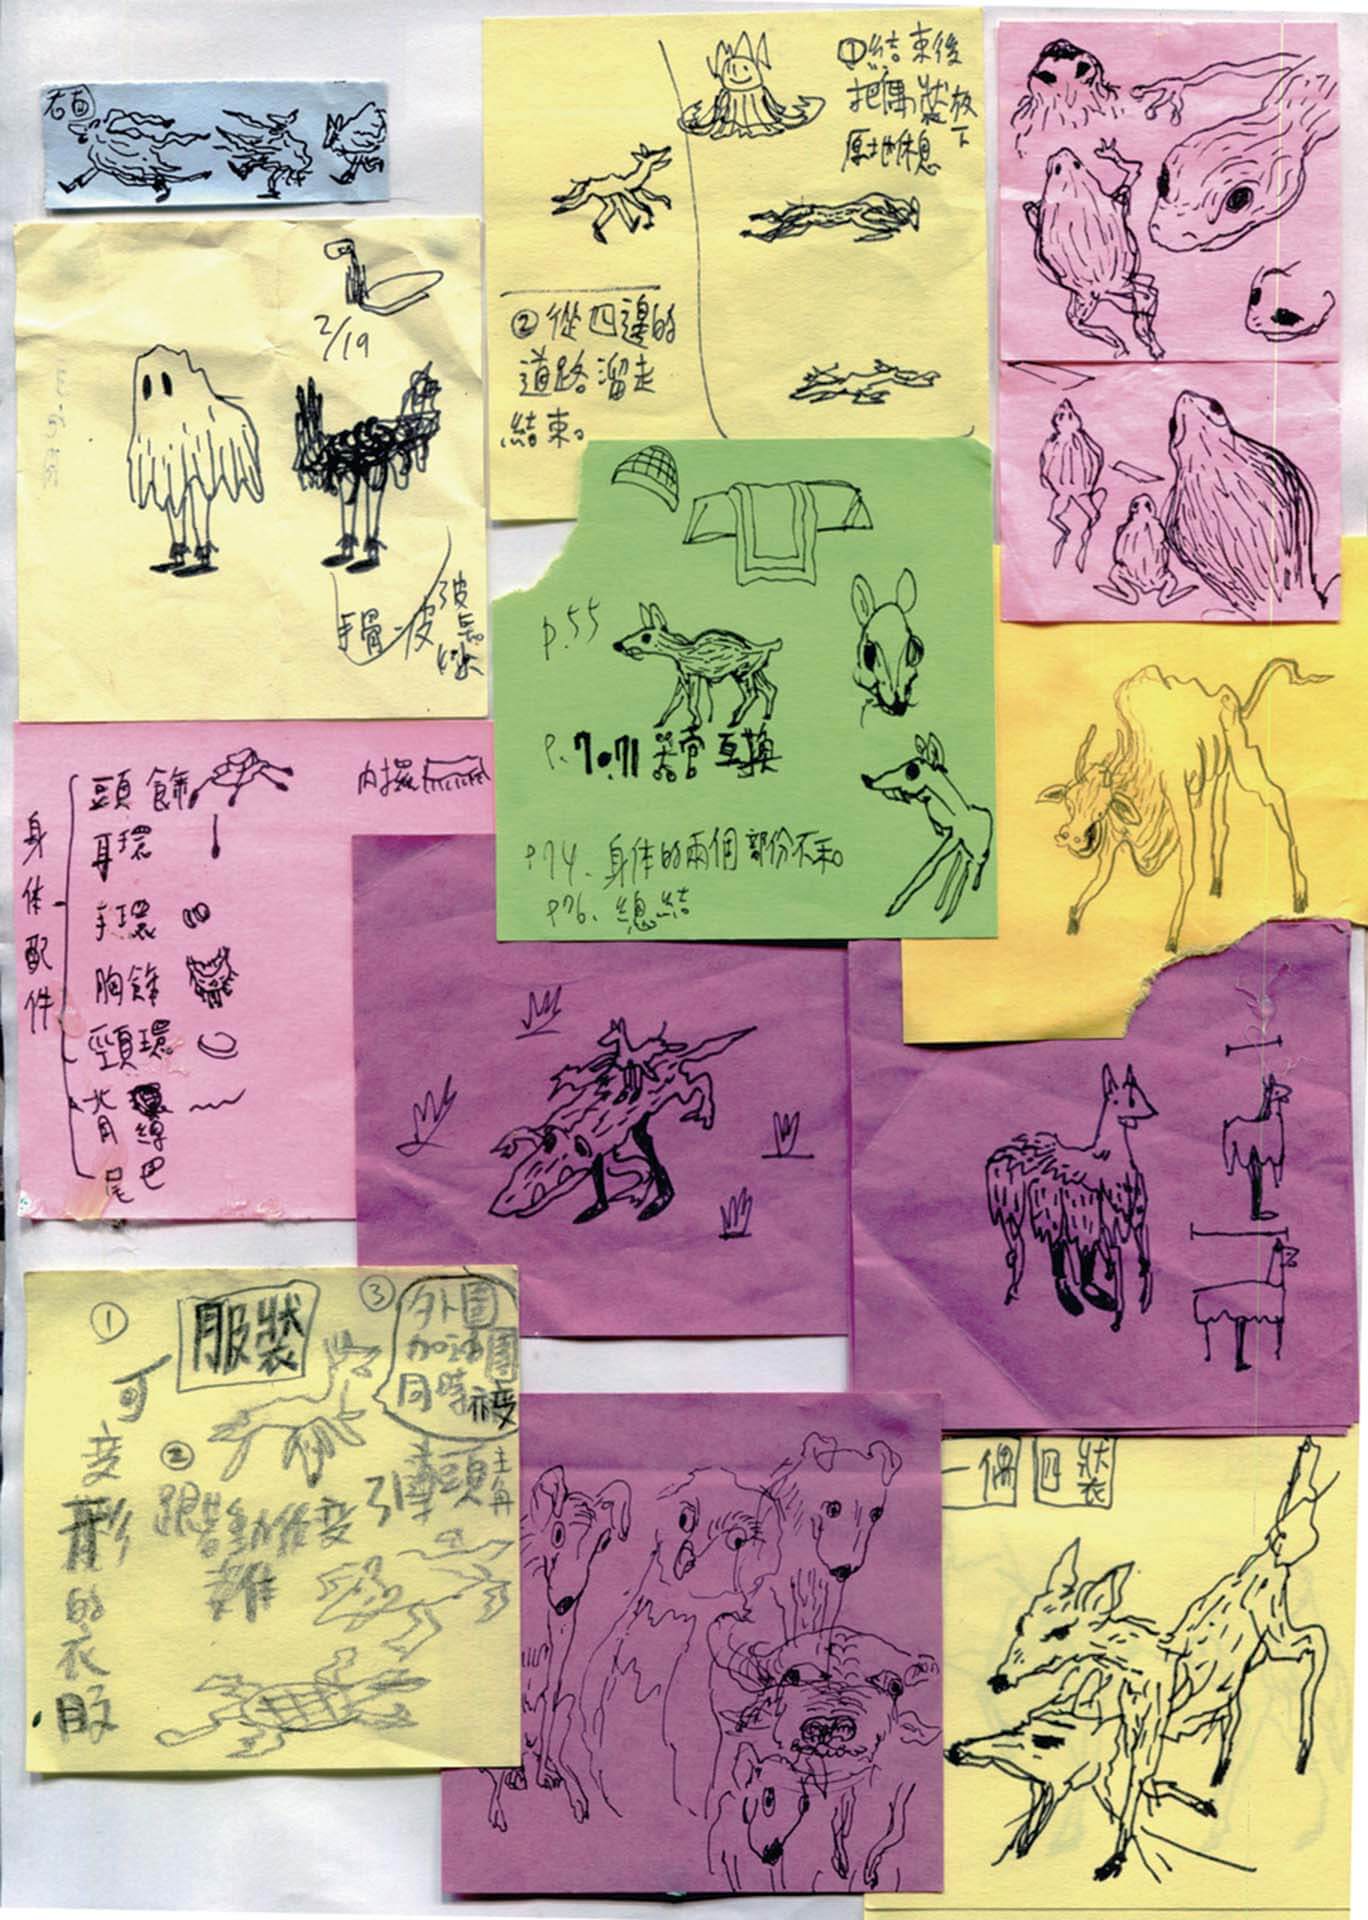 右直
①結束後
把偶狀放下
原地休息
②從四邊的
道路溜走
結束。
2/19
手骨
皮
p.55
P.70.71 器官互換
p74. 身体的兩個部份不和。
p76. 總結
身体配件
頭飾
耳環
手環
胸飾
頸環
背
尾巴
服裝
①
可變形的衣服
②
跟著動作變
③
外圍
同時
主角
一偶四裝